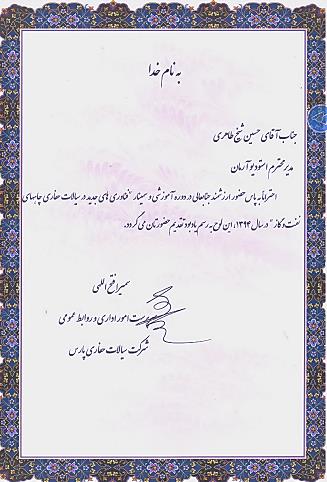 به نام خدا
جناب آقای حسین شیخ طاهری
مدیر محترم استودیو آرمان
احتراماً به پاس حضور ارزشمند جنابعالی در دوره آموزشی و سمینار "فناوری های جدید در سیالات حفاری چاههای
نفت و گاز" در سال ۱۳۹۴، این لوح به رسم یادبود تقدیم حضورتان می گردد.
سمیرا فتح اللهی
مدیریت امور اداری و روابط عمومی
شرکت سیالات حفاری پارس